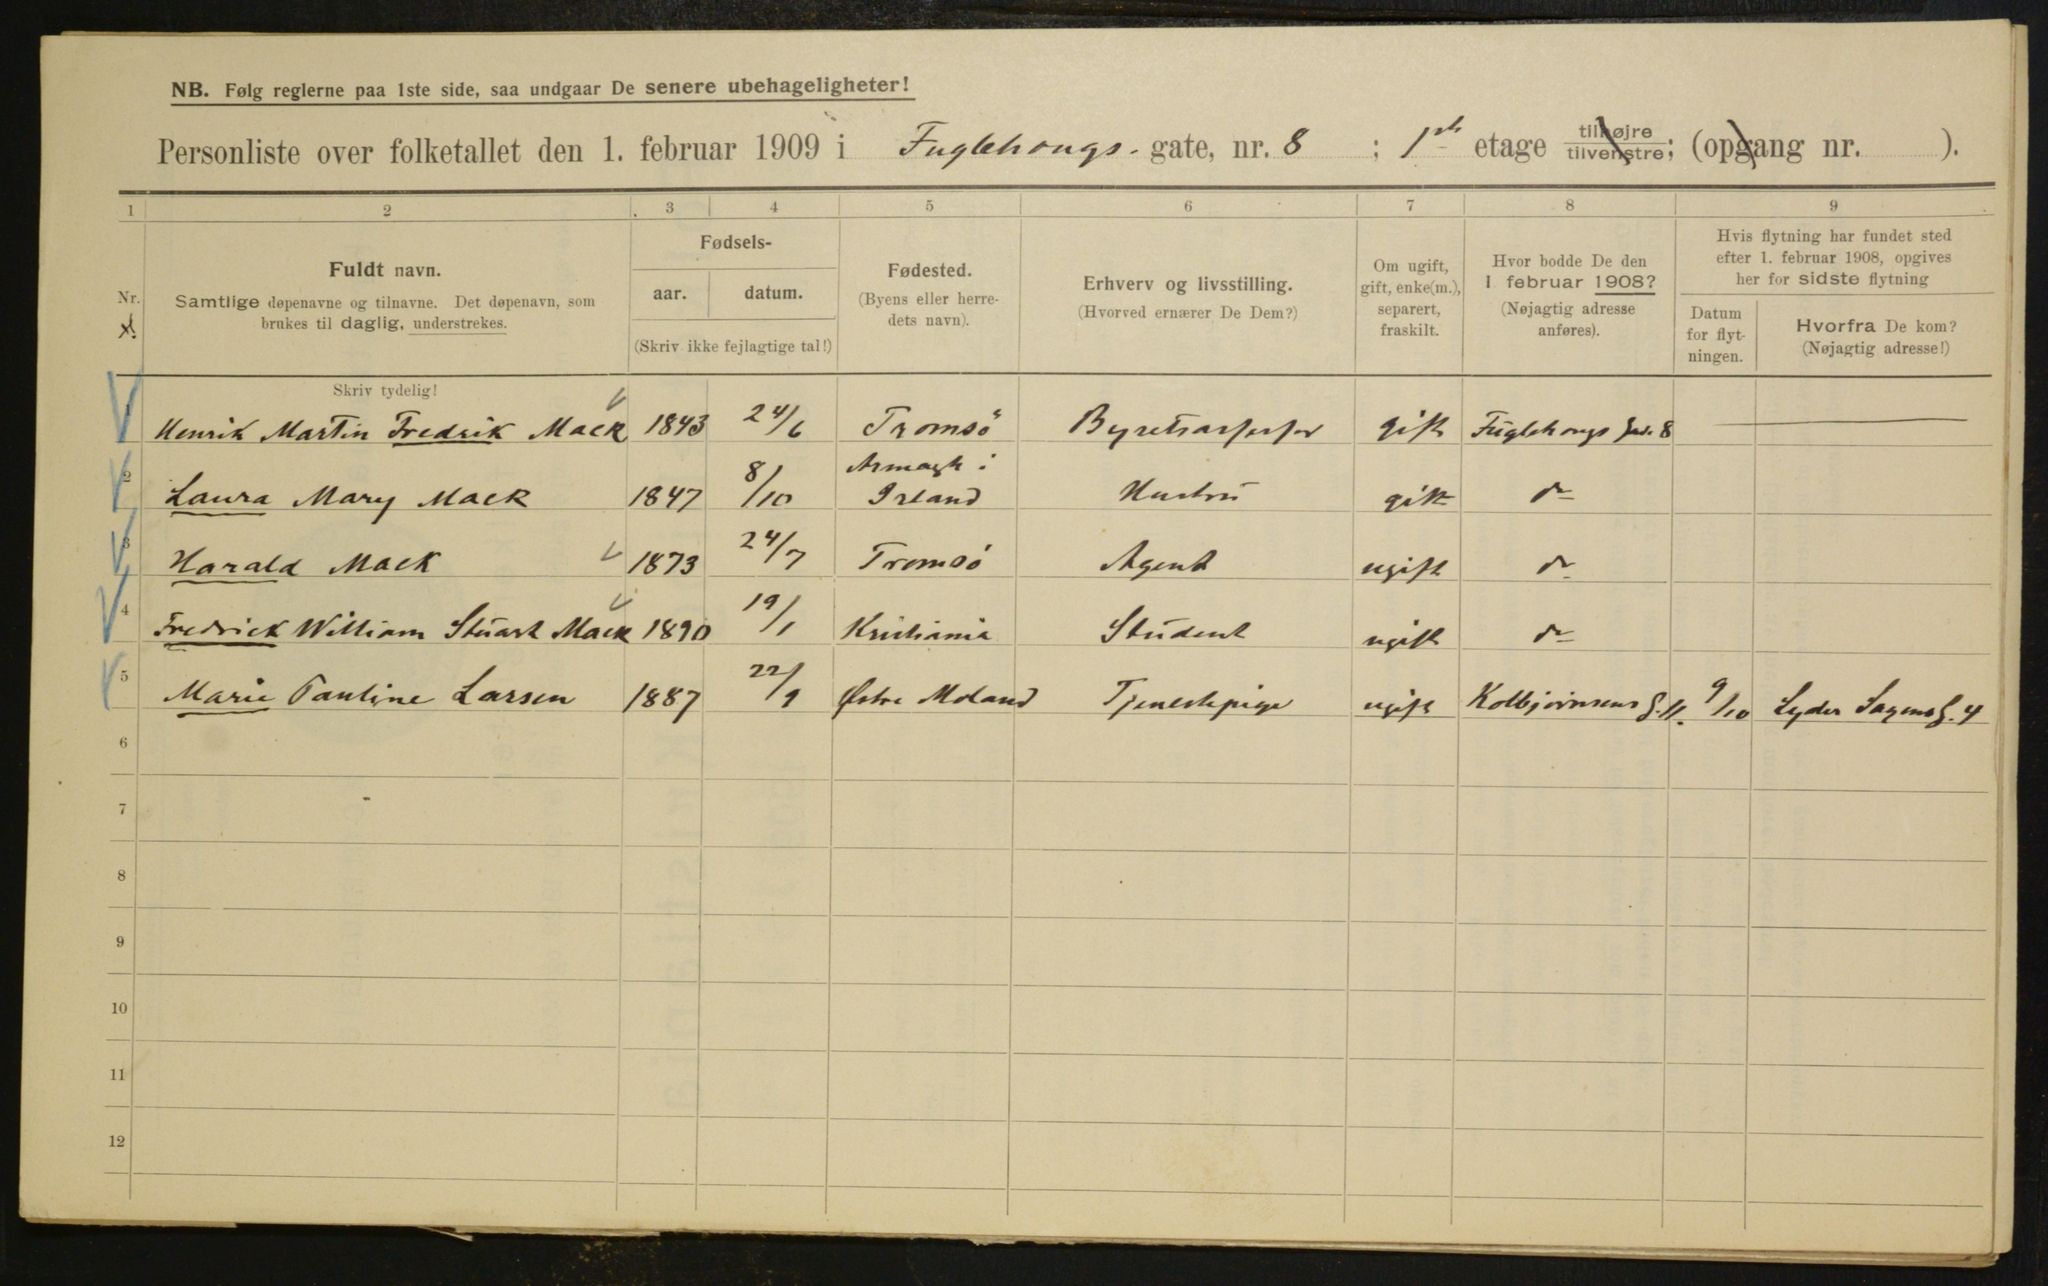 NB. Følg reglerne paa 1ste side, saa undgaar De senere ubehageligheter!
Personliste over folketallet den 1. februar 1909 i Fuglehaugs. gate, nr. 8 ; 1ste etage tilhøjre tilvenstre; (opgang nr. ).
1 2 3 4 5 6 7 8 9
Nr.
Fuldt navn.
Samtlige døpenavne og tilnavne. Det døpenavn, som
brukes til daglig, understrekes.
Skriv tydelig!
Fødsels-
aar. datum.
(Skriv ikke fejlagtige tal!)
Fødested.
(Byens eller herre-
dets navn).
Erhverv og livsstilling.
(Hvorved ernærer De Dem?)
Om ugift,
gift, enke(m.),
separert,
fraskilt.
Hvor bodde De den
1 februar 1908?
(Nøjagtig adresse
anføres).
Hvis flytning har fundet sted
efter 1. februar 1908, opgives
her for sidste flytning
Datum
for flyt-
ningen.
Hvorfra De kom?
(Nøjagtig adresse!)
1 Henrik Martin Fredrik Mack 1843 24/6 Tromsö gift Fuglehaugs 8
2 Laura Mary Mack 1847 8/10 Armagh i Irland Hustru gift do
3 Harald Mack 1873 24/7 Tromsö Agent ugift do
4 Fredrick William Stuart Mack 1890 19/1 Kristiania Student ugift do
5 Marie Pauline Larsen 1887 22/9 Østre Moland Tjenestepige ugift Kolbjørnsens g. 11. 9/10 Lyder Sagens g. 4
6
7
8
9
10
11
12